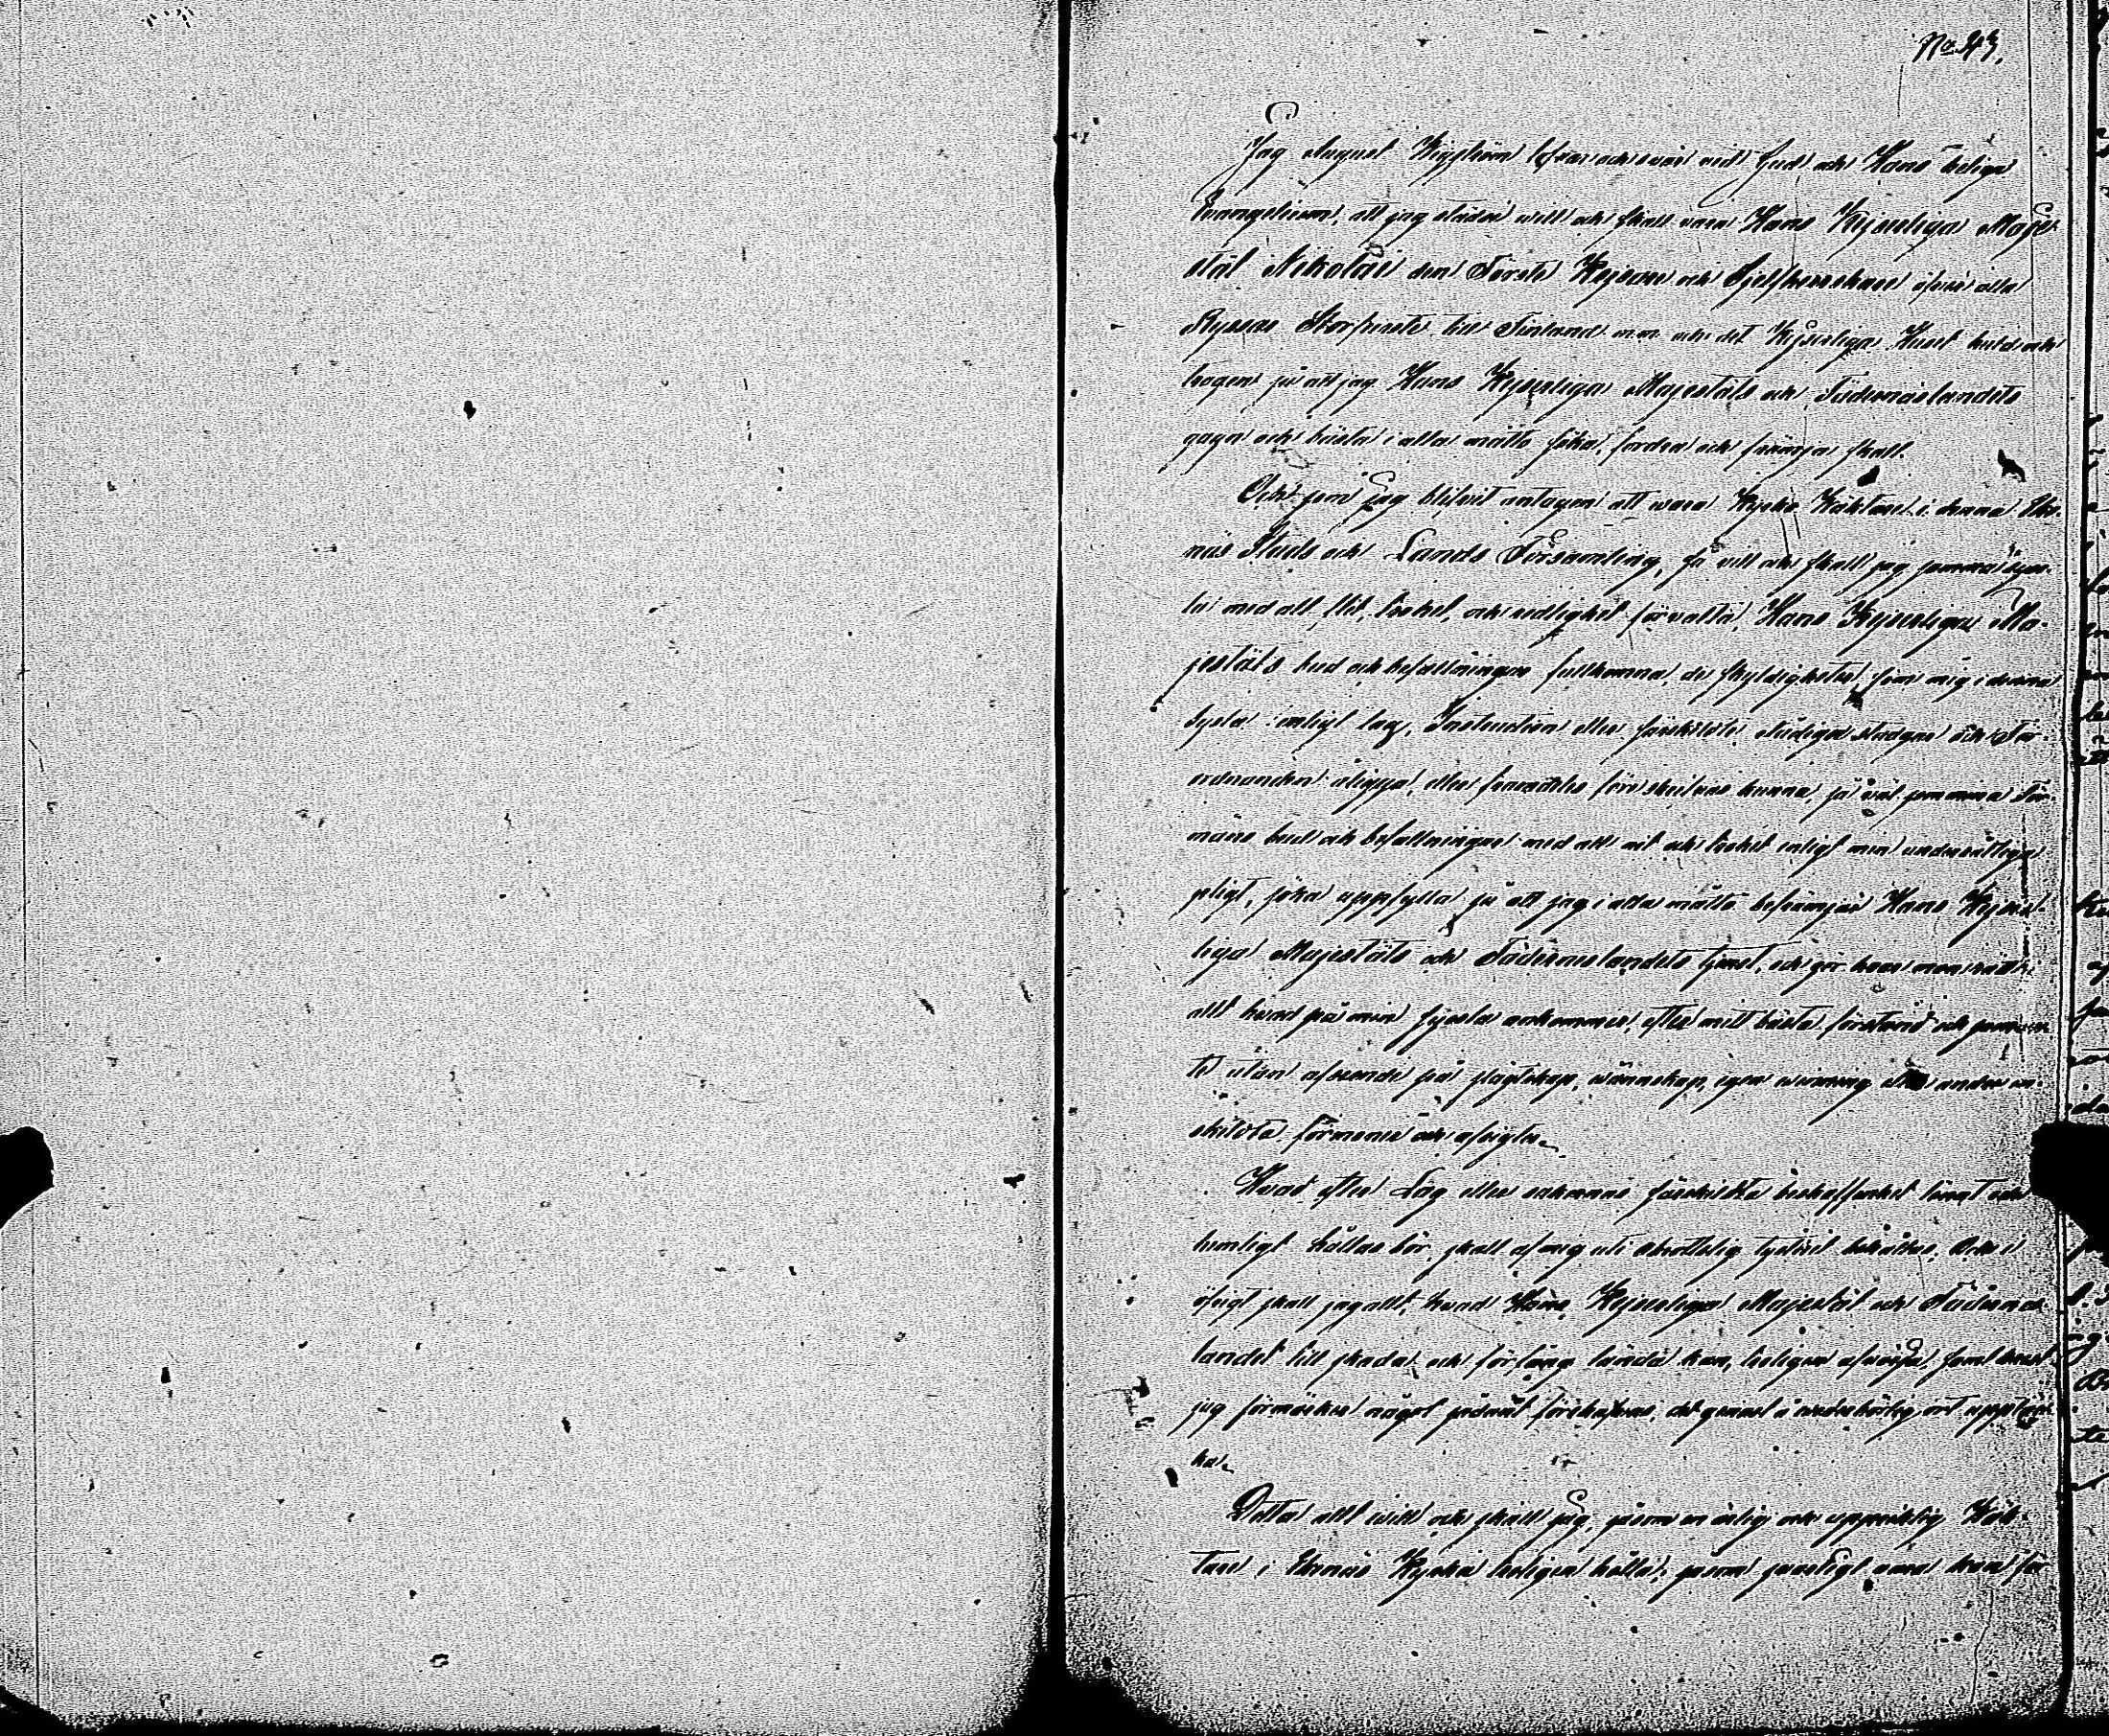 No 43.
Jag August Wigström lofvar och svär vid Gud och Hans heliga
Evangelium, att jag städse will och skall vara Hans Kejserliga Maje-
stät Nikolai den Förste Kejsare och Sjelfherrskare öfver alla
Ryssar Storfurste till Finland m.m. och det Kejserliga Huset huld och
trogen så att jag Hans Kejserliga Majestäts och Fäderneslandets
gagn och bästa i alla måtto söka, fordra och främja skall.
Och som jag blifvit antagen att wara Kyrko Wäktare i denna Eke-
näs Stads och Lands Församling, så vill och skall jag samma syss-
la med all flit, trohet, och redlighet förvalta, Hans Kejserliga Ma-
jestäts bud och befallningar fullkomna, de skyldigheter som mig i denna
sysla enligt lag, Instruction eller särskilte städige stadgar och För-
ordnanden åligga, eller framdeles föreskrivas kunna, så väl som mina För-
mäns bud och befallningar med all nit och trohet enligt min undersåtliga
pligt, söka uppfylla så att jag i alla måtto befrämjar Hans Kejser-
liga Majestäts och Fäderneslandets tjenst, och gör hvar man rätt i
allt hvad på min syssla ankommer, efter mitt bästa förstånd och samve-
te utan afseende på slägtskap, wänskap, egen winning eller andra en-
skilda förmoner och afsigter.
Hwad efter Lag eller sakernas särskilta beskaffenhet tyst och
hemligt hållas bör, skall af mig uti obrottslig tystnad bevaras. Och i
öfrigt skall jag allt, hvad Hans Kejserliga Majestät och Fädernes-
landet till skada och förfång lända kan, troligen afvärja, samt hvarest
jag förmärker något sådant förehafvas, det genast å wederbörlig ort upptäc-
ka.
Detta allt will och skall jag, såsom en ärlig och uppriktig Wäk-
tare i Ekenäs Kyrka troligen hålla, såsom jag